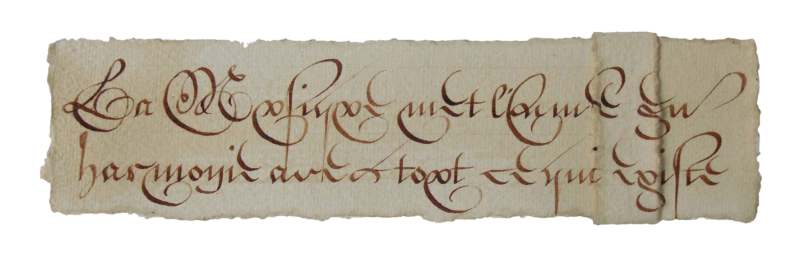 La Musique met l'âme en
harmonie avec tout ce qui existe